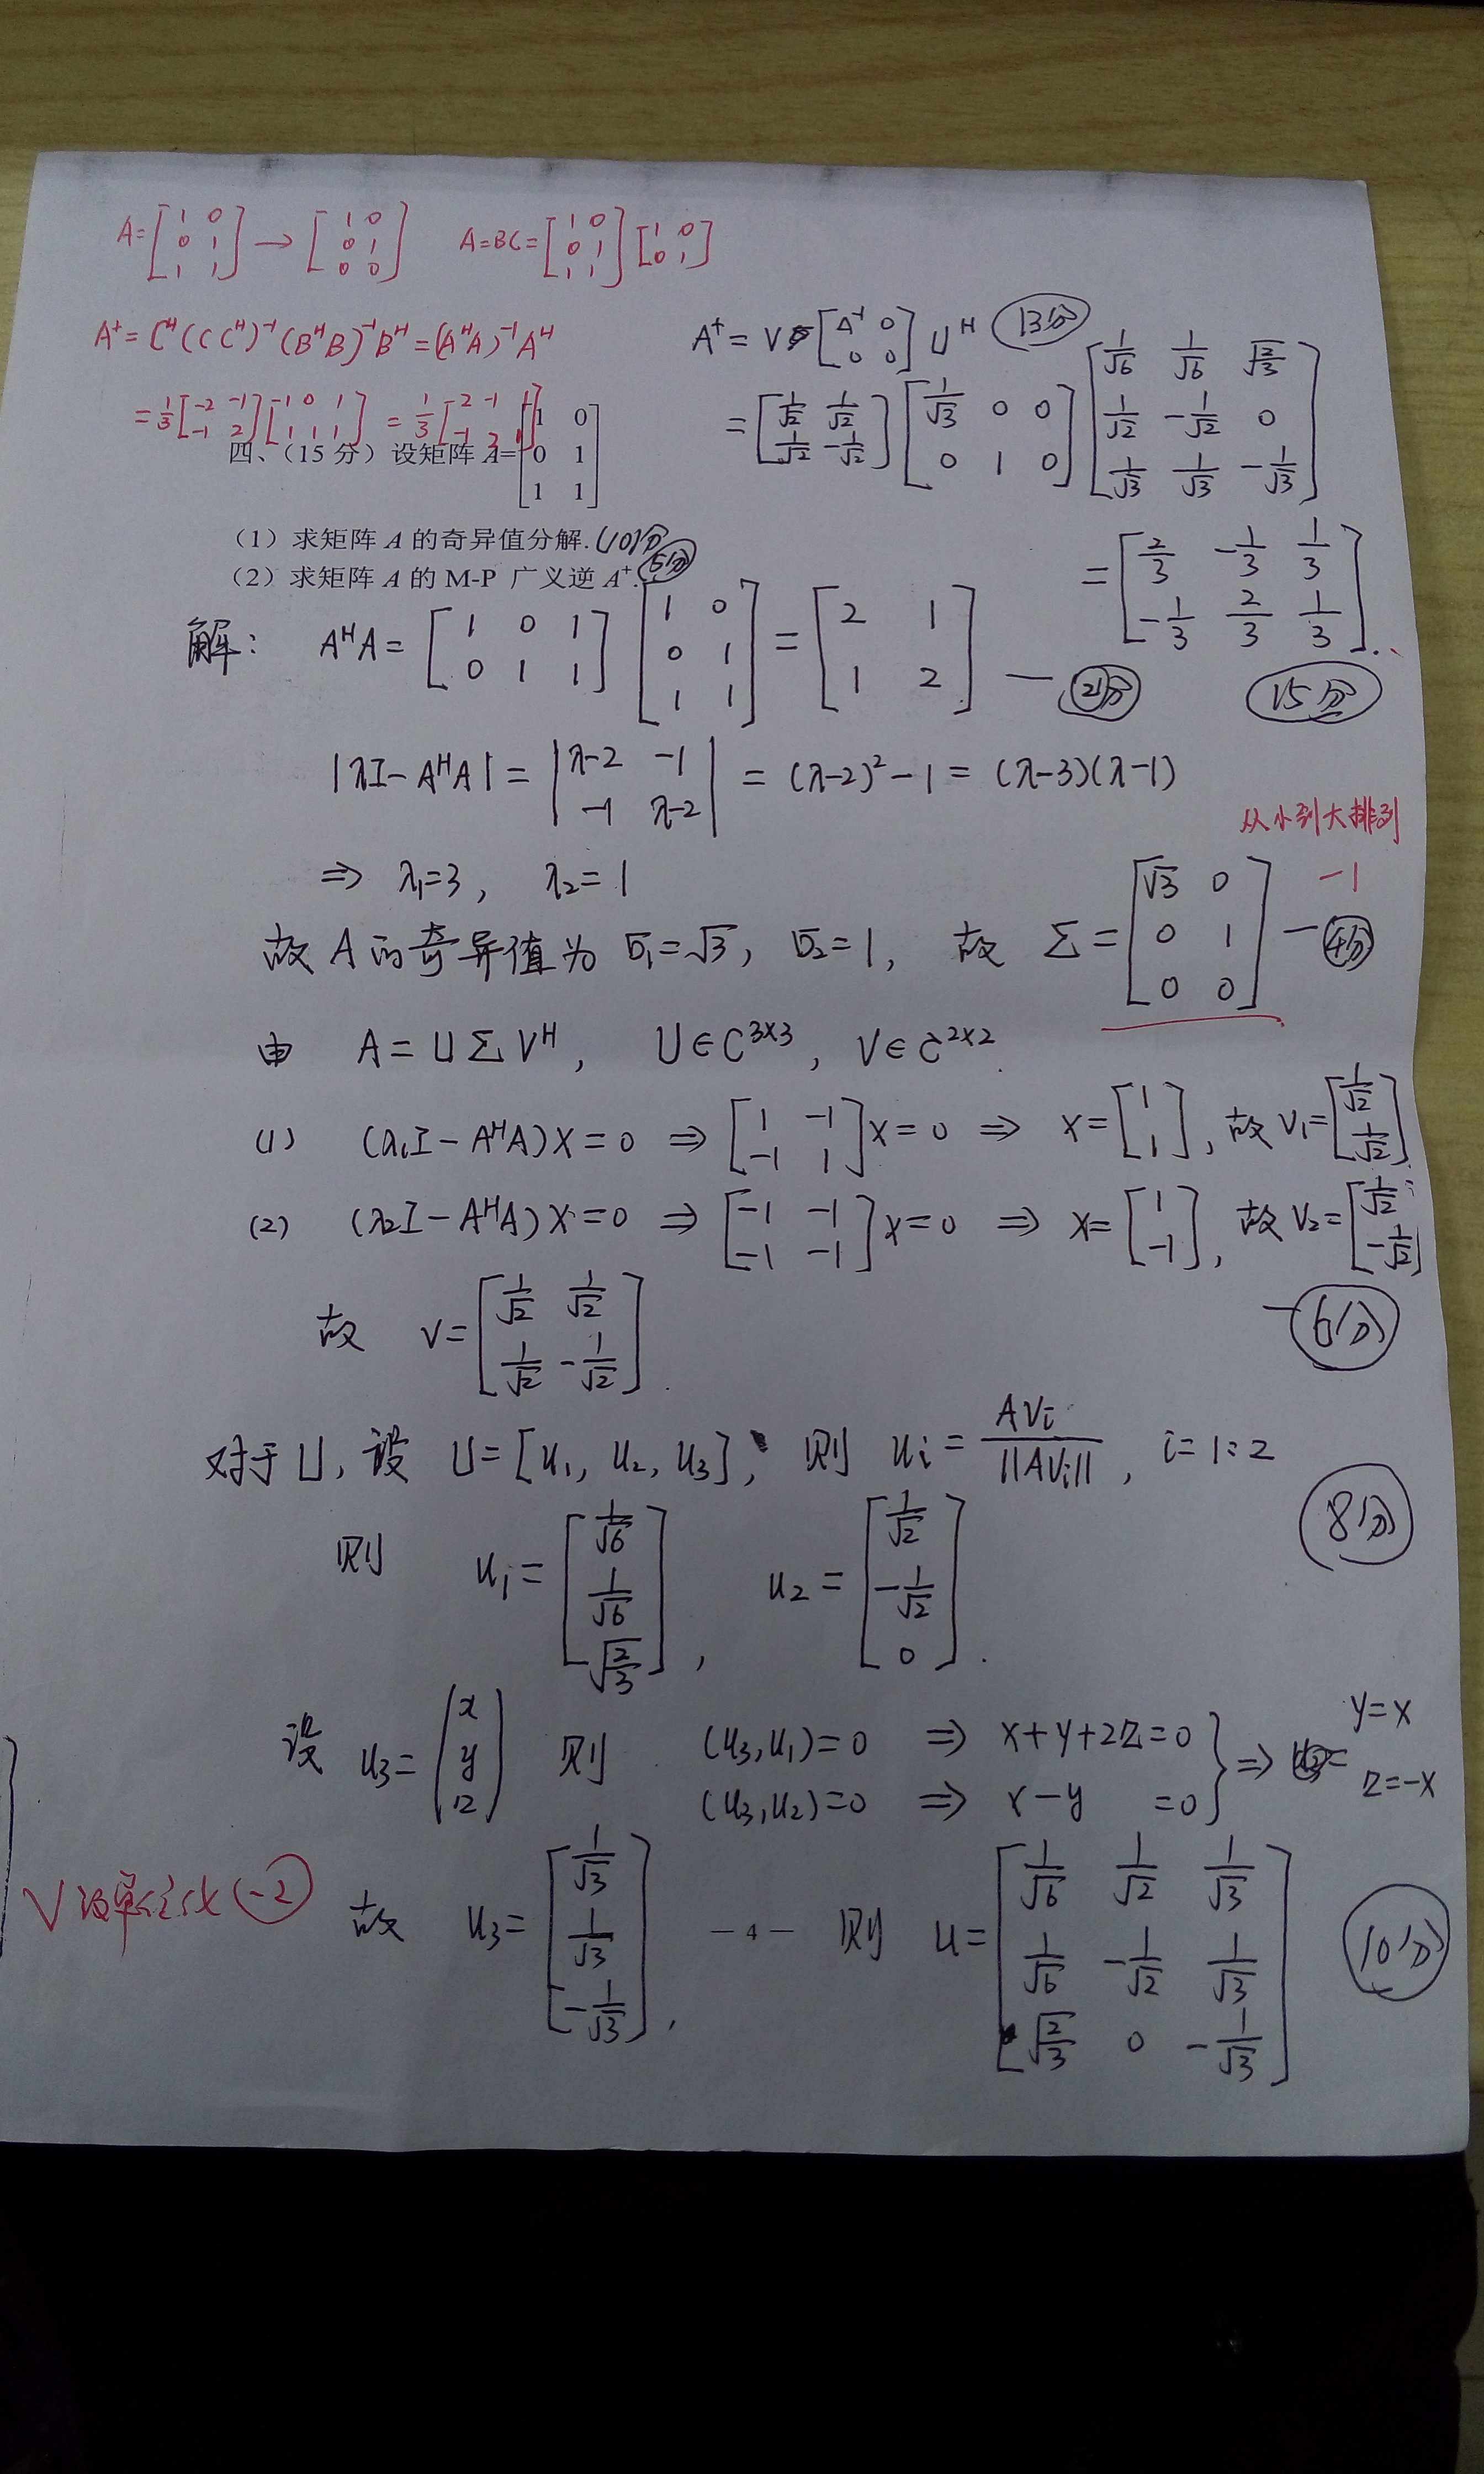 A=[1 0; 0 1; 1 1] → [1 0; 0 1; 0 0]  A=BC=[1 0; 0 1; 1 1][1 0; 0 1]
A⁺=Cᴴ(CCᴴ)⁻¹(BᴴB)⁻¹Bᴴ=(AᴴA)⁻¹Aᴴ
=1/3[2 -1; -1 2][1 0 1; 1 1 1] = 1/3[2 -1 1; -1 2 1]
A⁺ = V[Δ⁻¹ 0; 0 0]Uᴴ 13分
=[1/√2 1/√2; 1/√2 -1/√2][1/√3 0 0; 0 1 0][1/√6 1/√6 √(2/3); 1/√2 -1/√2 0; 1/√3 1/√3 -1/√3]
=[2/3 -1/3 1/3; -1/3 2/3 1/3].
15分
四、（15 分）设矩阵 A=[1 0; 0 1; 1 1]
（1）求矩阵 A 的奇异值分解.(10分)
（2）求矩阵 A 的 M-P 广义逆 A⁺. 5分
解: AᴴA=[1 0 1; 0 1 1][1 0; 0 1; 1 1]=[2 1; 1 2] — 2分
|λI-AᴴA|=|λ-2 -1; -1 λ-2|=(λ-2)²-1=(λ-3)(λ-1)
⇒ λ₁=3, λ₂=1
从小到大排列
-1
故 A 的奇异值为 σ₁=√3, σ₂=1, 故 Σ=[√3 0; 0 1; 0 0] — 4分
由 A=UΣVᴴ, U∈C³ˣ³, V∈C²ˣ².
(1) (λ₁I-AᴴA)X=0 ⇒ [1 -1; -1 1]X=0 ⇒ X=[1; 1], 故 V₁=[1/√2; 1/√2];
(2) (λ₂I-AᴴA)X=0 ⇒ [-1 -1; -1 -1]X=0 ⇒ X=[1; -1], 故 V₂=[1/√2; -1/√2]
故 V=[1/√2 1/√2; 1/√2 -1/√2]. — 6分
对于U, 设 U=[u₁, u₂, u₃], 则 uᵢ=AVᵢ/||AVᵢ||, i=1:2
则 u₁=[1/√6; 1/√6; √(2/3)], u₂=[1/√2; -1/√2; 0]. 8分
设 u₃=(x; y; z) 则 (u₃,u₁)=0 ⇒ x+y+2z=0
(u₃,u₂)=0 ⇒ x-y =0 } ⇒ y=x z=-x
V没单位化 -2
故 u₃=[1/√3; 1/√3; -1/√3], 则 U=[1/√6 1/√2 1/√3; 1/√6 -1/√2 1/√3; √(2/3) 0 -1/√3] 10分
－4－